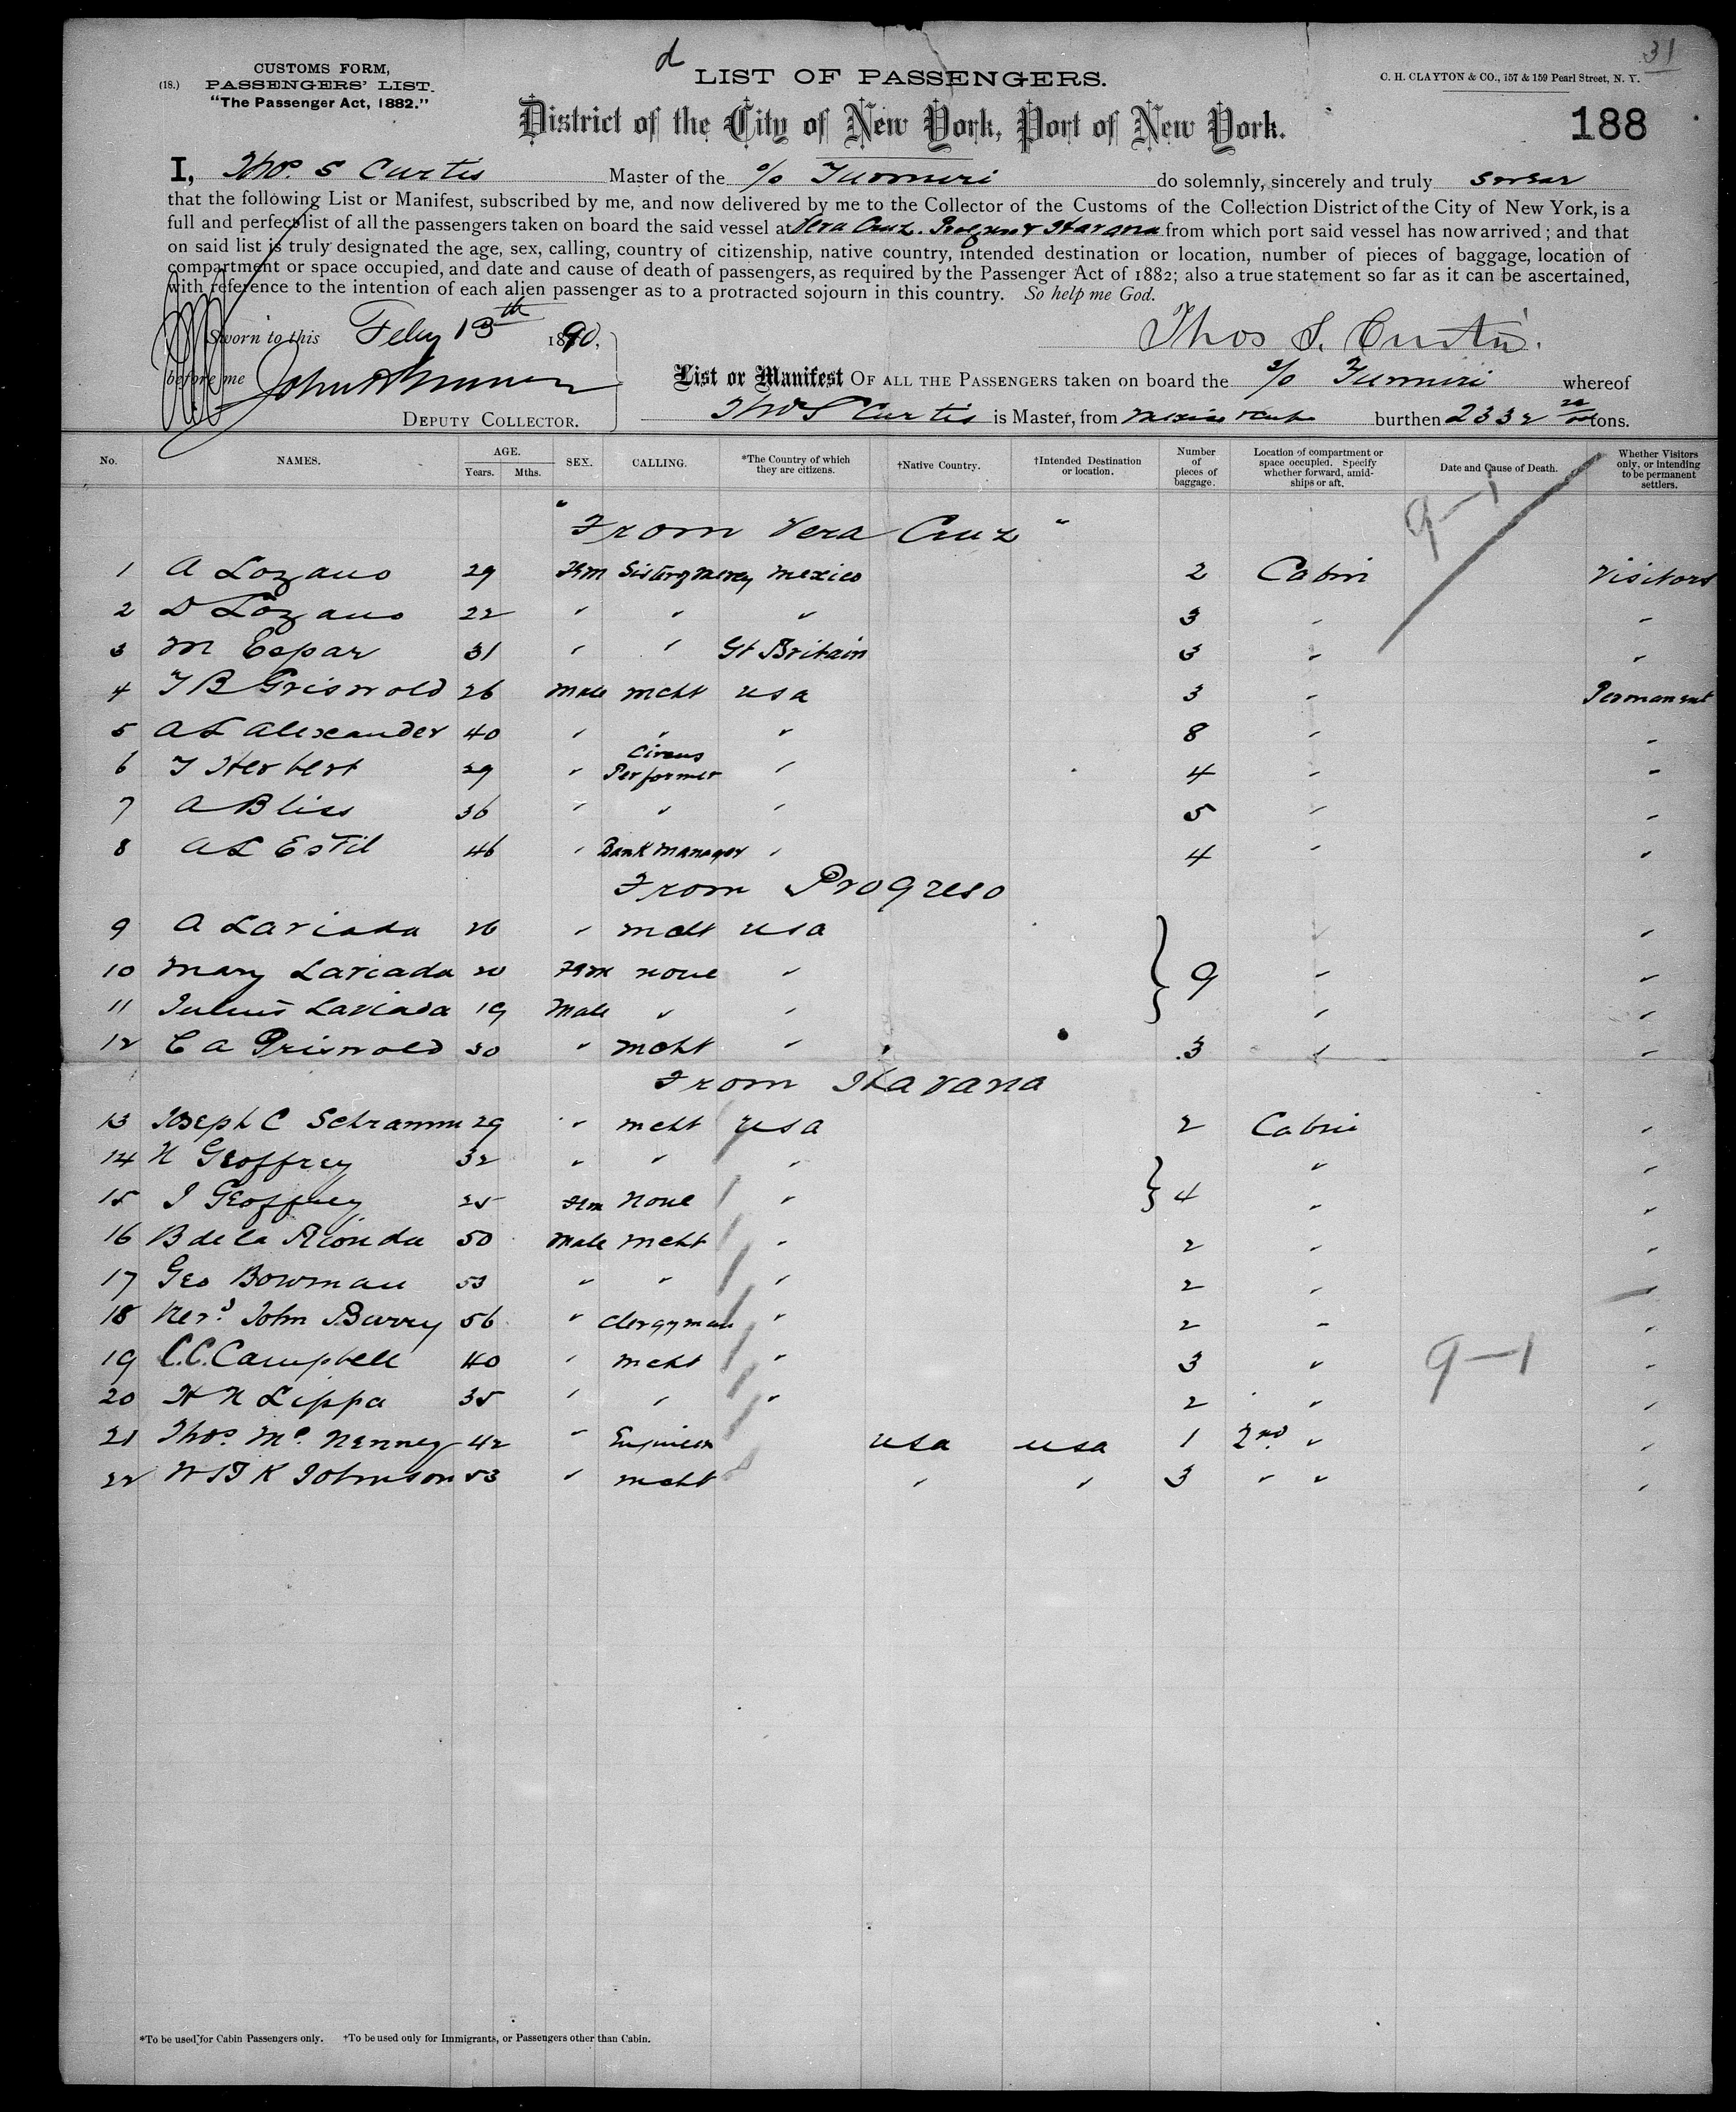 31
d
CUSTOMS FORM,
(18.) PASSENGERS' LIST.
"The Passenger Act, 1882."
LIST OF PASSENGERS.
C. H. CLAYTON & CO., 157 & 159 Pearl Street, N. Y.
District of the City of New York, Port of New York.
188
I, Thos S Curtis Master of the S/S Yumuri do solemnly, sincerely and truly swear
that the following List or Manifest, subscribed by me, and now delivered by me to the Collector of the Customs of the Collection District of the City of New York, is a
full and perfect list of all the passengers taken on board the said vessel at Vera Cruz. Progreso & Havana from which port said vessel has now arrived; and that
on said list is truly designated the age, sex, calling, country of citizenship, native country, intended destination or location, number of pieces of baggage, location of
compartment or space occupied, and date and cause of death of passengers, as required by the Passenger Act of 1882; also a true statement so far as it can be ascertained,
with reference to the intention of each alien passenger as to a protracted sojourn in this country. So help me God.
Sworn to this Feby 13th 1890,
Thos S. Curtis.
before me
List or Manifest OF ALL THE PASSENGERS taken on board the S/S Yumuri whereof
DEPUTY COLLECTOR.
Thos S Curtis is Master, from Mexico & Cuba burthen 2332 tons.
No. NAMES. AGE. Years. Mths. SEX. CALLING. *The Country of which they are citizens. †Native Country. †Intended Destination or location. Number of pieces of baggage. Location of compartment or space occupied. Specify whether forward, amidships or aft. Date and Cause of Death. Whether Visitors only, or intending to be permanent settlers.
9-1
" From Vera Cruz "
1 A Lozano 29 Fem Sister of Mercy Mexico 2 Cabin Visitors
2 D Lozano 22 " " " 3 " "
3 M Espar 31 " " Gt Britain 3 " "
4 T B Griswold 26 Male Mcht USA 3 " Permanent
5 A L Alexander 40 " " " 8 " "
6 T Herbert 29 " Circus Performer " 4 " "
7 A Bliss 36 " " " 5 " "
8 A L Estil 46 " Bank Manager " 4 " "
From Progreso
9 A Laviada 26 " Mcht USA " "
10 Mary Laviada 20 Fem none " } 9 " "
11 Julius Laviada 19 Male " " " "
12 C A Griswold 30 " Mcht " 3 " "
From Havana
13 Joseph C Schramm 29 " Mcht USA 2 Cabin "
14 N Geoffrey 32 " " " " "
15 I Geoffrey 25 Fem None " } 4 " "
16 B de la Rionda 50 Male Mcht " 2 " "
17 Geo Bowman 53 " " " 2 " "
18 Revd John Barry 56 " Clergyman " 2 " "
19 C.C. Campbell 40 " Mcht " 3 " 9-1 "
20 H N Lippa 35 " " " 2 " "
21 Thos Mc Nenney 42 " Engineer USA USA 1 2nd " "
22 W B K Johnson 53 " Mcht " " 3 " " "
*To be used for Cabin Passengers only. †To be used only for Immigrants, or Passengers other than Cabin.